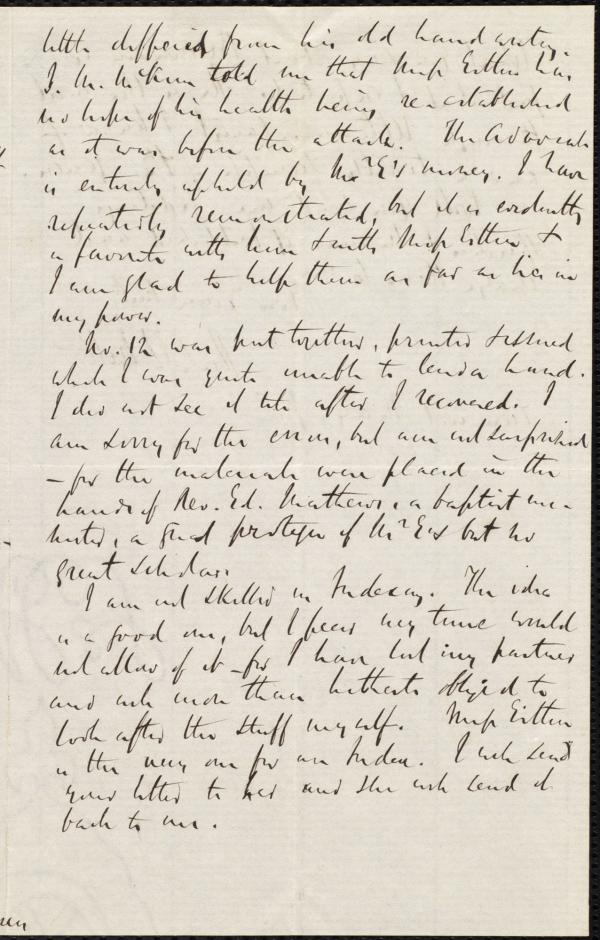 little different from his old handwriting.
J. M. McKim told me that Miss Estlin has
no hope of his health being re-established
as it was before the attack. The Advocate
is entirely upheld by Mr E's money. I have
repeatedly remonstrated, but it is evidently
a favorite with him & with Miss Estlin &
I am glad to help them as far as lies in
my power.
No. 12 was put together, printed & issued
while I was quite unable to lend a hand.
I did not see it till after I recovered. I
am sorry for the error, but am not surprised
- for the materials were placed in the
hands of Rev. Ed. Mathews, a baptist mi-
nister, a great protegee of Mr E's but no
great scholar.
I am not skilled in Indexing. The idea
is a good one, but I fear my time would
not allow of it - for I have lost my partner
and will more than hitherto obliged to
look after the stuff myself. Miss Estlin
is the very one for an Index. I will send
your letter to her and she will send it
back to me.